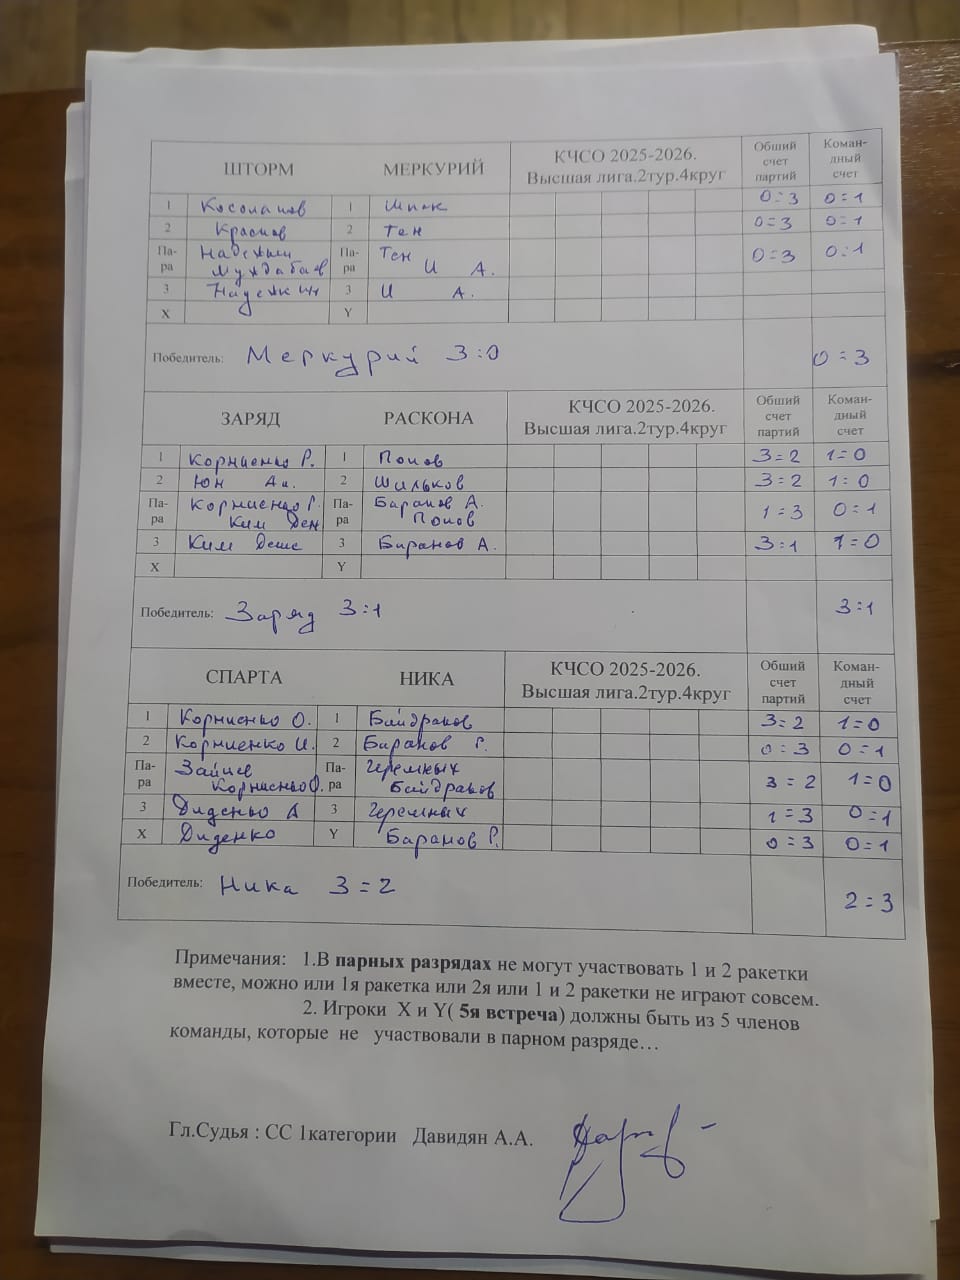 ШТОРМ МЕРКУРИЙ КЧСО 2025-2026. Высшая лига.2тур.4круг Общий счет партий Коман-дный счет
1 Косолапов 1 Шпак 0:3 0=1
2 Краснов 2 Тен 0=3 0=1
Па-ра Надежкин Муждабаев Па-ра Тен И А. 0=3 0:1
3 Надежкин 3 И А.
X Y
Победитель: Меркурий 3:0 0=3
ЗАРЯД РАСКОНА КЧСО 2025-2026. Высшая лига.2тур.4круг Общий счет партий Коман-дный счет
1 Корниенко Р. 1 Попов 3=2 1=0
2 Юн Ан. 2 Шильков 3=2 1=0
Па-ра Корниенко Р. Ким Ден Па-ра Баранов А. Попов 1=3 0=1
3 Ким Денис 3 Баранов А. 3:1 1=0
X Y
Победитель: Заряд 3:1 3:1
СПАРТА НИКА КЧСО 2025-2026. Высшая лига.2тур.4круг Общий счет партий Коман-дный счет
1 Корниенко О. 1 Байдраков 3=2 1=0
2 Корниенко И. 2 Баранов Р. 0=3 0=1
Па-ра Зайцев Корниенко О. Па-ра Черемных Байдраков 3=2 1=0
3 Диденко А 3 Черемных 1=3 0=1
X Диденко Y Баранов Р. 0=3 0=1
Победитель: Ника 3=2 2=3
Примечания: 1.В парных разрядах не могут участвовать 1 и 2 ракетки
вместе, можно или 1я ракетка или 2я или 1 и 2 ракетки не играют совсем.
2. Игроки X и Y( 5я встреча) должны быть из 5 членов
команды, которые не участвовали в парном разряде…
Гл.Судья : СС 1категории Давидян А.А.